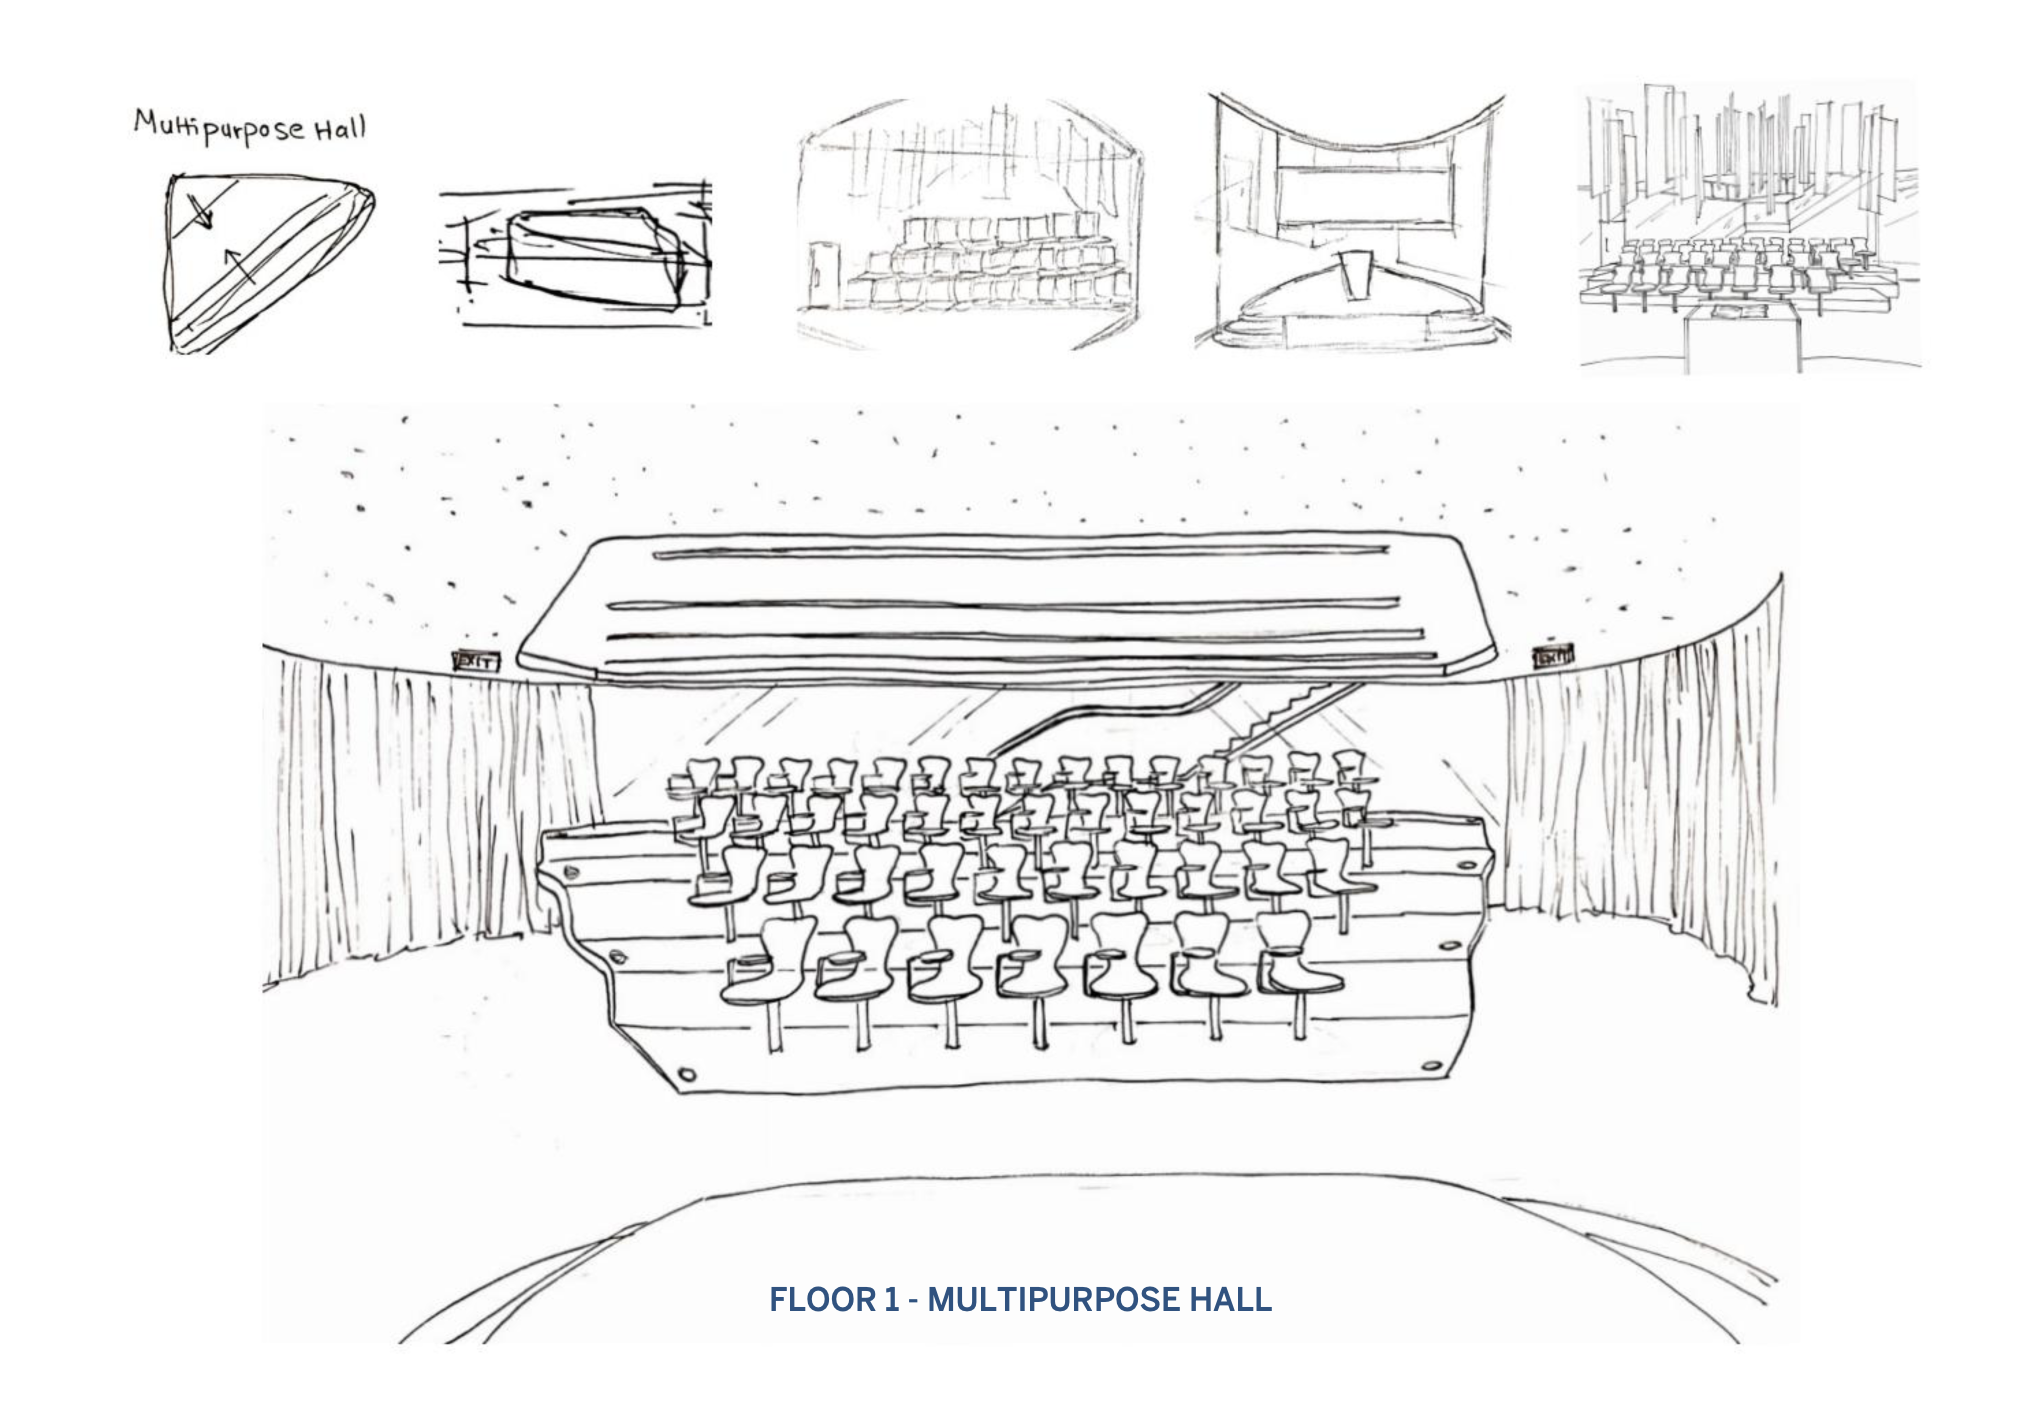 Multipurpose Hall
EXIT
EXIT
FLOOR 1 - MULTIPURPOSE HALL